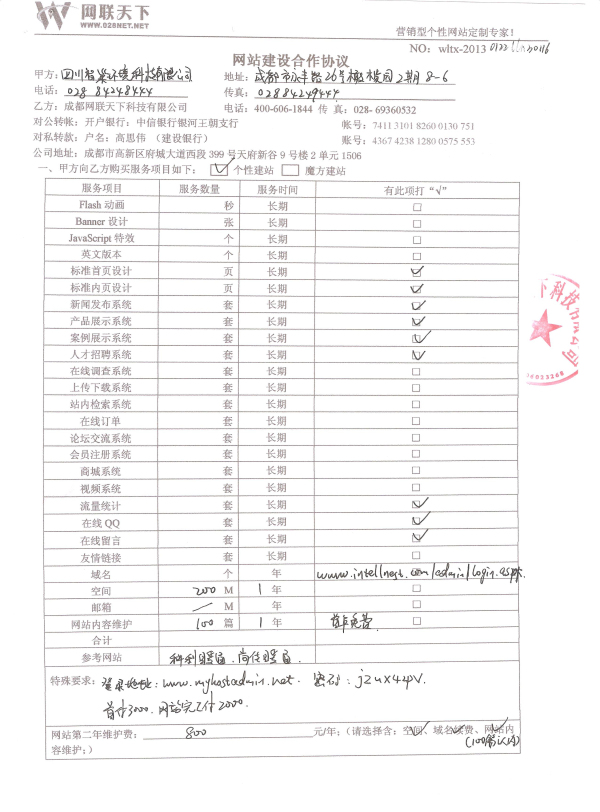 网联天下
www.028NET.NET
营销型个性网站定制专家!
NO: wltx-2013
网站建设合作协议
甲方: 四川智巢环境科技有限公司 地址: 成都市永丰路26号橄榄园2期8-6
电话: 028 84248444 传真: 02884249444
乙方: 成都网联天下科技有限公司 电话: 400-606-1844 传 真: 028- 69360532
对公转帐: 开户银行: 中信银行银河王朝支行 帐号: 7411 3101 8260 0130 751
对私转款: 户名: 高思伟 (建设银行) 账号: 4367 4238 1280 0575 553
公司地址: 成都市高新区府城大道西段 399 号天府新谷 9 号楼 2 单元 1506
一、甲方向乙方购买服务项目如下: ☑ 个性建站 □ 魔方建站
服务项目 服务数量 服务时间 有此项打“√”
Flash 动画 秒 长期 □
Banner 设计 张 长期 □
JavaScript 特效 个 长期 □
英文版本 个 长期 □
标准首页设计 页 长期 ☑
标准内页设计 页 长期 ☑
新闻发布系统 套 长期 ☑
产品展示系统 套 长期 ☑
案例展示系统 套 长期 ☑
人才招聘系统 套 长期 ☑
在线调查系统 套 长期 □
上传下载系统 套 长期 □
站内检索系统 套 长期 □
在线订单 套 长期 □
论坛交流系统 套 长期 □
会员注册系统 套 长期 □
商城系统 套 长期 □
视频系统 套 长期 □
流量统计 套 长期 ☑
在线 QQ 套 长期 ☑
在线留言 套 长期 ☑
友情链接 套 长期 □
域名 个 年 www.intellnest.com/admin/login.aspx.
空间 200 M 1 年 □
邮箱 / M 年 □
网站内容维护 100 篇 1 年 首年免费
合计
参考网站 科利
特殊要求: 登录地址: www.myhostadmin.net. 密码: jzux44pv.
首付3000. 网站完工付2000.
网站第二年维护费: 800 元/年; (请选择含: 空间、域名续费、网站内
容维护;) (100篇以内)
下科技有限公司